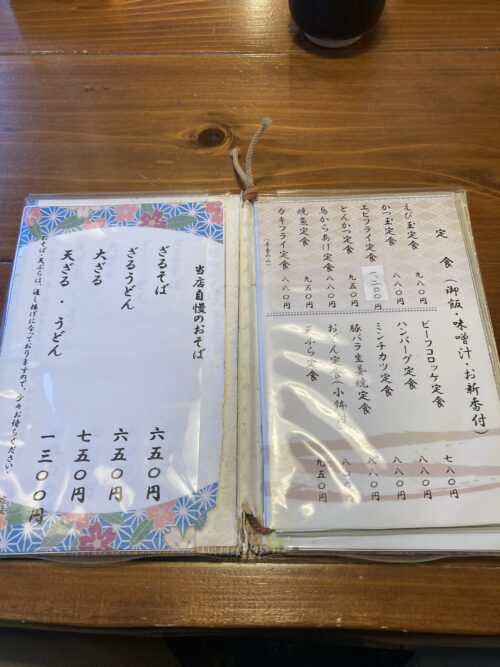 定食(御飯・味噌汁・お新香付)
えび玉定食 九八〇円
かつ玉定食 八八〇円
エビフライ定食 一二〇〇円
とんかつ定食 九五〇円
鳥からあげ定食 八八〇円
焼魚定食 九五〇円
カキフライ定食 八八〇円
(冬季のみ)
ビーフコロッケ定食 七八〇円
ハンバーグ定食 八八〇円
ミンチカツ定食 八八〇円
豚バラ生姜焼定食 八八〇円
おでん定食(小鉢付)
天ぷら定食 九五〇円
当店自慢のおそば
ざるそば 六五〇円
ざるうどん 六五〇円
大ざる 七五〇円
天ざる・うどん 一三〇〇円
おそば・天ぷらは、通し揚げになっておりますので、少々お待ちください。